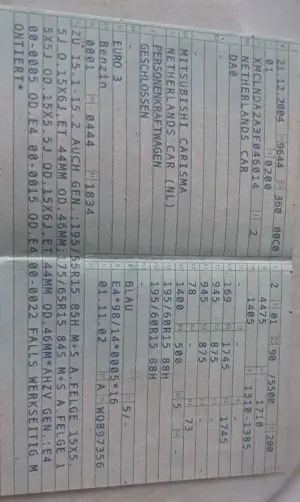 21.12.2004 9644 360 00C0
01 0200
XMCLNDA2A3F046014 2
NETHERLANDS CAR
DA0
-
MITSUBISHI CARISMA
NETHERLANDS CAR (NL)
PERSONENKRAFTWAGEN
GESCHLOSSEN
-
EURO 3
Benzin
0001 0444 1834
2 01 90 /5500 200
4475 1710
1405 1310-1385
-
169 1745 1745
945 875 -
945 875 -
78 - 73
1400 500 5 -
195/60R15 88H
195/60R15 88H
-
BLAU 5/-
E4*98/14*0005*16
01.11.02 A WQ897356
ZU 15.1-15.2 AUCH GEN.:195/55R15 85H M+S A.FELGE 15X5
5J O.15X6J,ET 44MM OD.46MM;175/65R15 84S M+S A.FELGE 1
5X5J OD.15X5,5J OD.15X6J,ET 44MM OD.46MM*AHZV GEN.:E4
00-0005 OD.E4 00-0015 OD.E4 00-0022 FALLS WERKSEITIG M
ONTIERT*